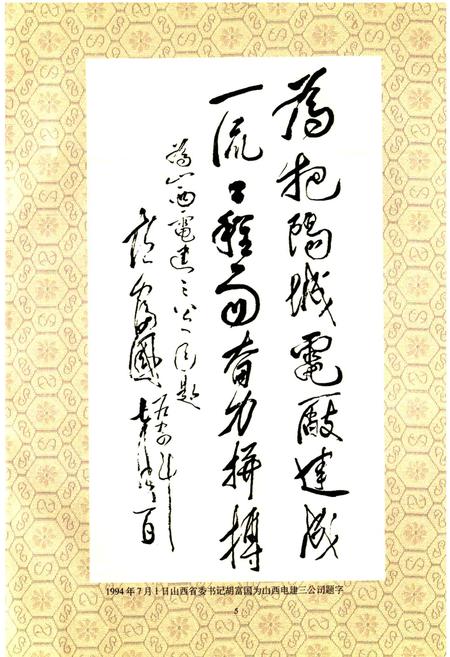 為把陽城電厰建成
一流工程而奋力拼搏
為山西電建三公司題
胡富國
1994年7月1日山西省委书记胡富国为山西电建三公司题字
5